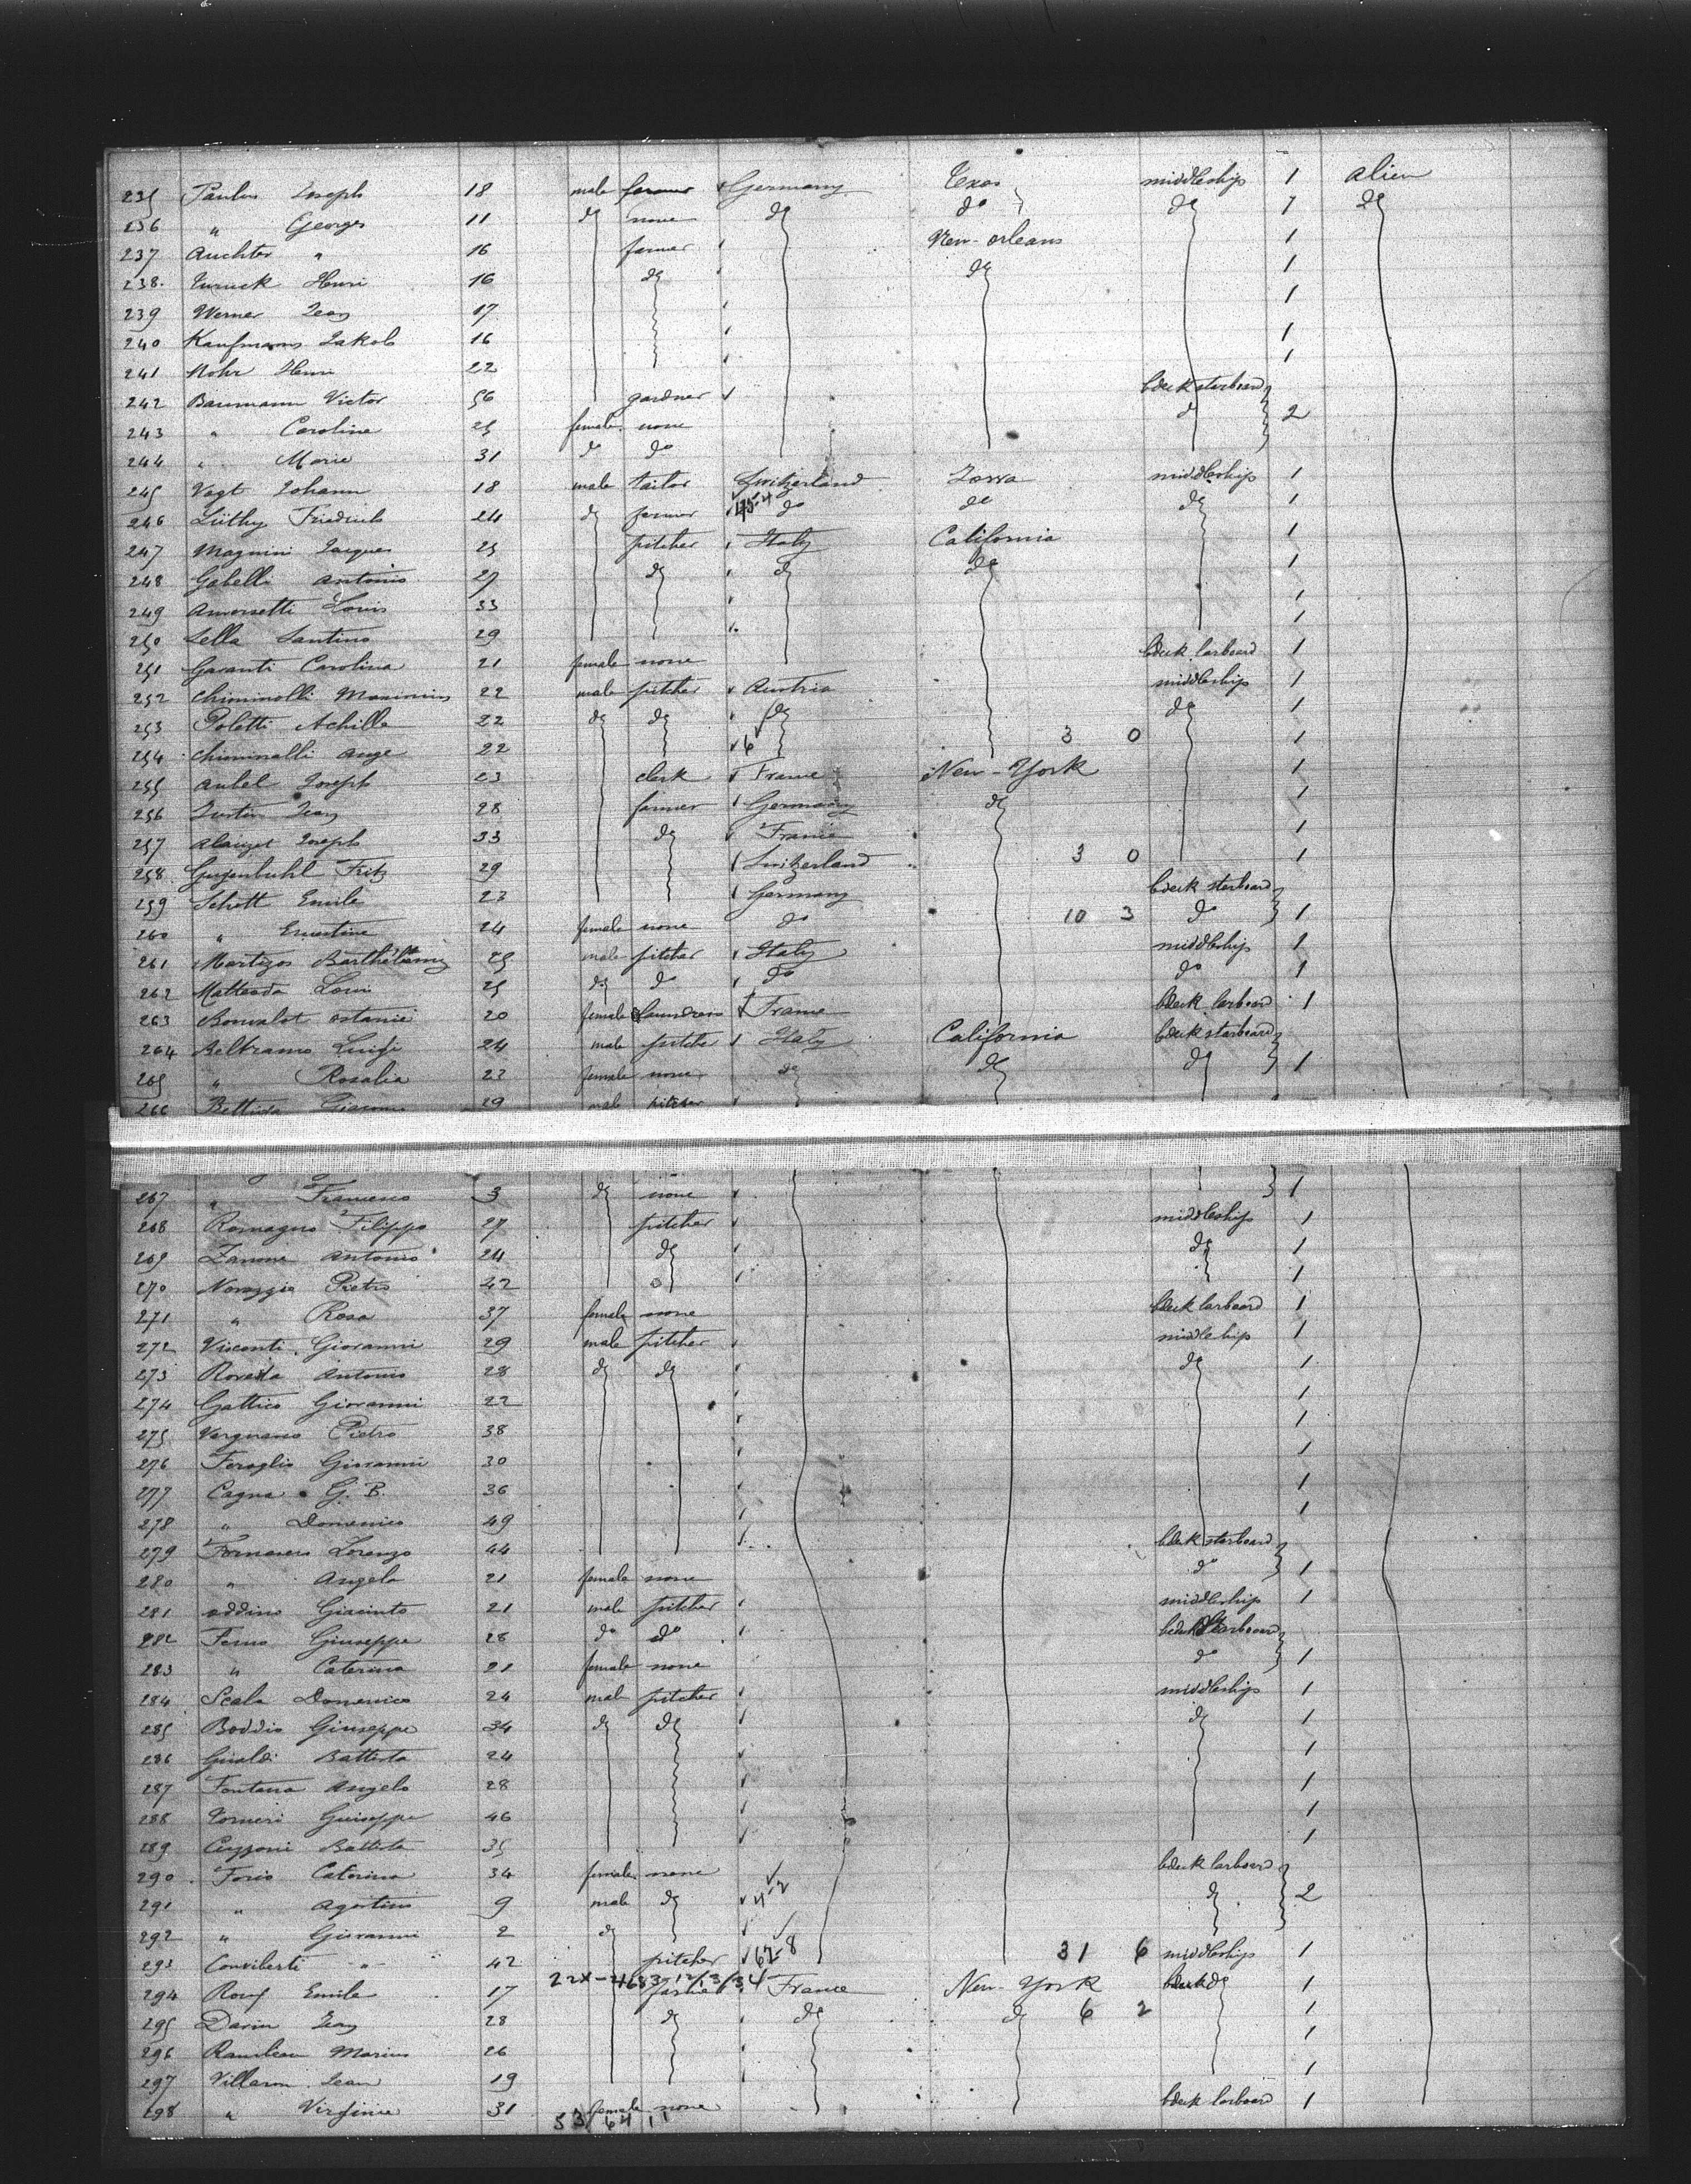 235 Paulus Joseph 18 male farmer Germany Texas middleship 1 alien
236 " Georges 11 do none do do do 1 do
237 Auchter " 16 farmer New-orleans 1
238. Henri 16 do do 1
239 Werner Jean 17 1
240 Kaufmann Jakob 16 1
241 Mohr Henri 22 1
242 Baumann Victor 56 gardner bdeck starboard
243 " Caroline 25 female none do 2
244 " Marie 31 do do
245 Vogt Johann 18 male tailor Switzerland Iowa middleship 1
246 Lüthy Friedrich 24 do farmer do do do 1
247 Magnini Jacques 25 pitcher Italy California 1
248 Gabelli antonio 27 do do do 1
249 Louis 33 1
250 Sella Santino 29 1
251 Garanti Carolina 21 female none bdeck larboard 1
252 Chiminolli 22 male pitcher Austria middleship 1
253 Poletti Achille 22 do do do do 1
254 Chiminalli ange 22 6 3 0 1
255 aubel Joseph 23 clerk France New-York 1
256 Jean 28 farmer Germany do 1
257 alauzet Joseph 33 do France 1
258 Gugenbuhl Fritz 29 Switzerland 3 0 1
259 Schott Emile 23 Germany bdeck starboard
260 " Ernestine 24 female none do 10 3 do 1
261 Barthélémy 25 male pitcher Italy middleship 1
262 Matteoda Louis 25 do do do do 1
263 Bonvalot 20 female laundress France bdeck larboard 1
264 Beltramo Luigi 24 male pitcher Italy California bdeck starboard
265 " Rosalia 23 female none do do do 1
266 Giacomo 29 male pitcher
267 " Francesco 3 do none 1
268 Romagno Filippo 27 pitcher middleship 1
269 Zanone antonio 24 do do 1
270 Pietro 42 1
271 " Rosa 37 female none bdeck larboard 1
272 Visconti Giovanni 29 male pitcher middleship 1
273 Antonio 28 do do do 1
274 Gattico Giovanni 22 1
275 Vergnano Pietro 38 1
276 Feraglio Giovanni 30 1
277 Cagna G. B. 36 1
278 " Domenico 49 1
279 Lorenzo 44 bdeck starboard
280 " Angela 21 female none do 1
281 oddino Giacinto 21 male pitcher middleship 1
282 Giuseppe 28 do do bdeck starboard
283 " Caterina 21 female none do 1
284 Scala Domenico 24 male pitcher middleship 1
285 Boddio Giuseppe 34 do do do 1
286 Battista 24 1
287 Fontana angelo 28 1
288 Giuseppe 46 1
289 Battista 35 1
290 Caterina 34 female none bdeck larboard
291 " Agostino 9 male do do 2
292 " Giovanni 2 do
293 " 42 pitcher 31 6 middleship 1
22X-4683 12/13/34
294 Roux Emile 17 France New-York bdeck do 1
295 Jean 28 do do do 6 2 1
296 Marius 26 1
297 Jean 19 1
298 " Virginie 31 female none bdeck larboard 1